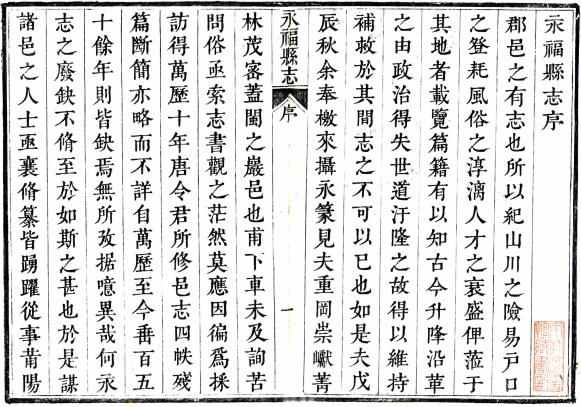 永福縣志序
郡邑之有志也所以紀山川之險易戸口
之登耗風俗之淳漓人才之衰盛俾蒞于
其地者載覽篇籍有以知古今升降沿革
之由政治得失世道汙隆之故得以維持
補救於其間志之不可以已也如是夫戊
辰秋余奉檄來攝永篆見夫重岡崇巘菁
永福縣志
序
一
林茂宻蓋閩之巖邑也甫下車未及詢苦
問俗亟索志書觀之茫然莫應因徧爲採
訪得萬歷十年唐令君所修邑志四帙殘
篇斷簡亦略而不詳自萬歷至今畨百五
十餘年則皆缺焉無所攷据噫異哉何永
志之廢缺不脩至於如斯之甚也於是謀
諸邑之人士亟襄脩纂皆踴躍從事莆陽